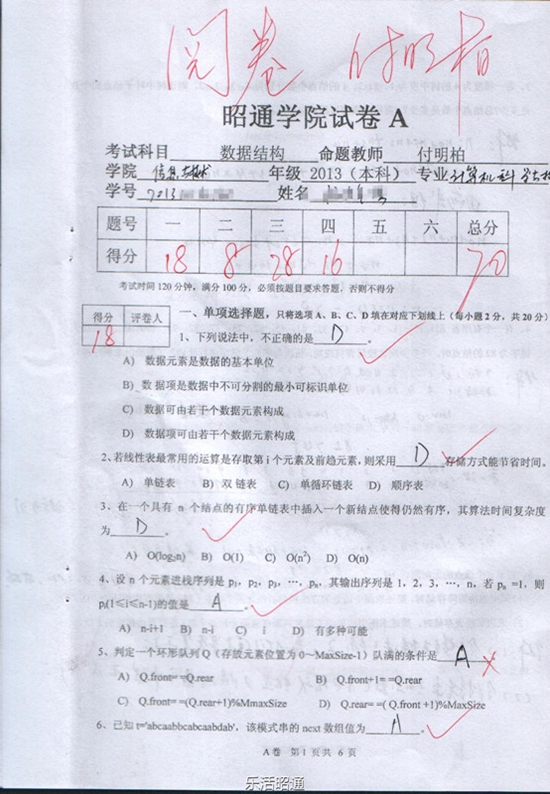 阅卷 付明柏
昭通学院试卷 A
考试科目 数据结构 命题教师 付明柏
学院 信息技术 年级 2013（本科） 专业 计算机科学技
学号 2013 姓名
题号 一 二 三 四 五 六 总分
得分 18 8 28 16 70
考试时间 120 分钟，满分 100 分，必须按题目要求答题，否则不得分
得分 评卷人
18
一、单项选择题，只将选项 A、B、C、D 填在对应下划线上（每小题 2 分，共 20 分）
1、下列说法中，不正确的是 D 。
A) 数据元素是数据的基本单位
B) 数据项是数据中不可分割的最小可标识单位
C) 数据可由若干个数据元素构成
D) 数据项可由若干个数据元素构成
2、若线性表最常用的运算是存取第 i 个元素及前趋元素，则采用 D 存储方式能节省时间。
A) 单链表 B) 双链表 C) 单循环链表 D) 顺序表
3、在一个具有 n 个结点的有序单链表中插入一个新结点使得仍然有序，其算法时间复杂度
为 D 。
A) O(log₂n) B) O(1) C) O(n²) D) O(n)
4、设 n 个元素进栈序列是 p₁，p₂，p₃，…，pₙ，其输出序列是 1，2，3，…，n，若 pₙ =1，则
pᵢ(1≤i≤n-1)的值是 A 。
A) n-i+1 B) n-i C) i D) 有多种可能
5、判定一个环形队列 Q（存放元素位置为 0～MaxSize-1）队满的条件是 A
A) Q.front= =Q.rear B) Q.front+1= =Q.rear
C) Q.front= =(Q.rear+1)%MmaxSize D) Q.rear= =( Q.front +1)%MaxSize
6、已知 t='abcaabbcabcaabdab'，该模式串的 next 数组值为 A 。
A 卷 第 1 页 共 6 页
乐活昭通